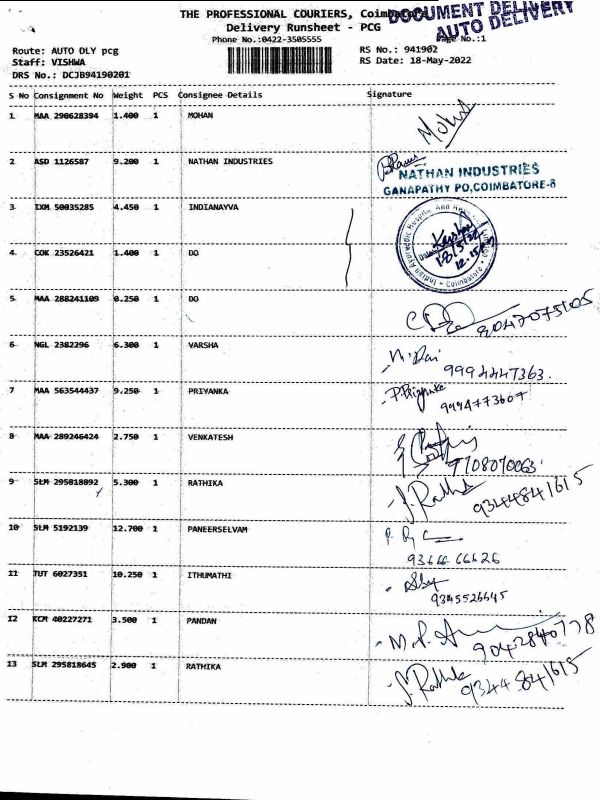 THE PROFESSIONAL COURIERS, Coimbatore
DOCUMENT DELIVERY
AUTO DELIVERY
Delivery Runsheet - PCG
Phone No.:0422-3505555
Page No.:1
Route: AUTO DLY pcg
RS No.: 941902
Staff: VISHWA
RS Date: 18-May-2022
DRS No.: DCJB94190201
S No Consignment No Weight PCS Consignee Details Signature
1 MAA 290628394 1.400 1 MOHAN
Mohan
2 ASD 1126587 9.200 1 NATHAN INDUSTRIES
NATHAN INDUSTRIES
GANAPATHY PO,COIMBATORE-6
3 IXM 50035285 4.450 1 INDIANAYVA
4 COK 23526421 1.400 1 DO
5 MAA 288241109 0.250 1 DO
9047075105
6 NGL 2382296 6.300 1 VARSHA
9994447363.
7 MAA 563544437 9.250 1 PRIYANKA
P.Priyanka
9994773607
8 MAA 289246424 2.750 1 VENKATESH
9708070063
9 SLM 295818892 5.300 1 RATHIKA
J. Rathika
9344841615
10 SLM 5192139 12.700 1 PANEERSELVAM
9366666626
11 TUT 6027351 10.250 1 ITHUMATHI
9345526645
12 KCM 40227271 3.500 1 PANDAN
9042840778
13 SLM 295818645 2.900 1 RATHIKA
J. Rathika
9344841615